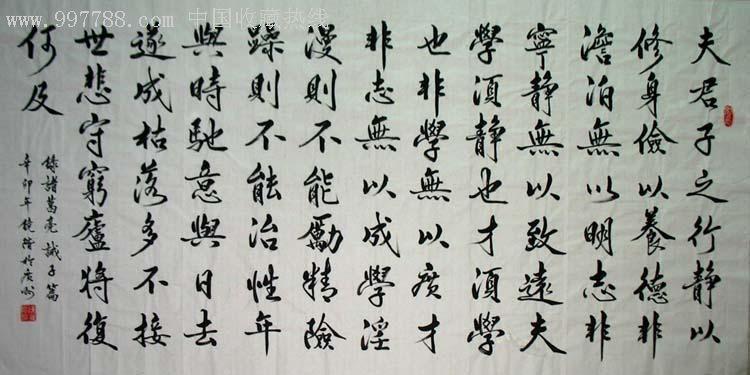 www.997788.com 中国收藏热线
夫君子之行静以
修身儉以養德非
澹泊無以明志非
寧静無以致遠夫
學須静也才須學
也非學無以廣才
非志無以成學淫
漫則不能勵精險
躁則不能治性年
與時馳意與日去
遂成枯落多不接
世悲守窮廬將復
何及
錄諸葛亮誡子篇
辛卯年於廣州